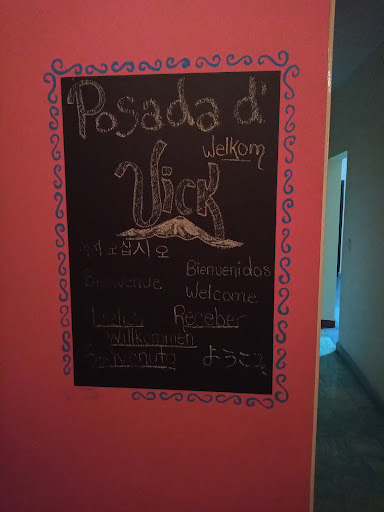 Posada d'
Welkom
Vick
십시오
Bienvenidos
Bienvenue
Welcome
Receber
Willkommen
Benvenuto
ようこそ